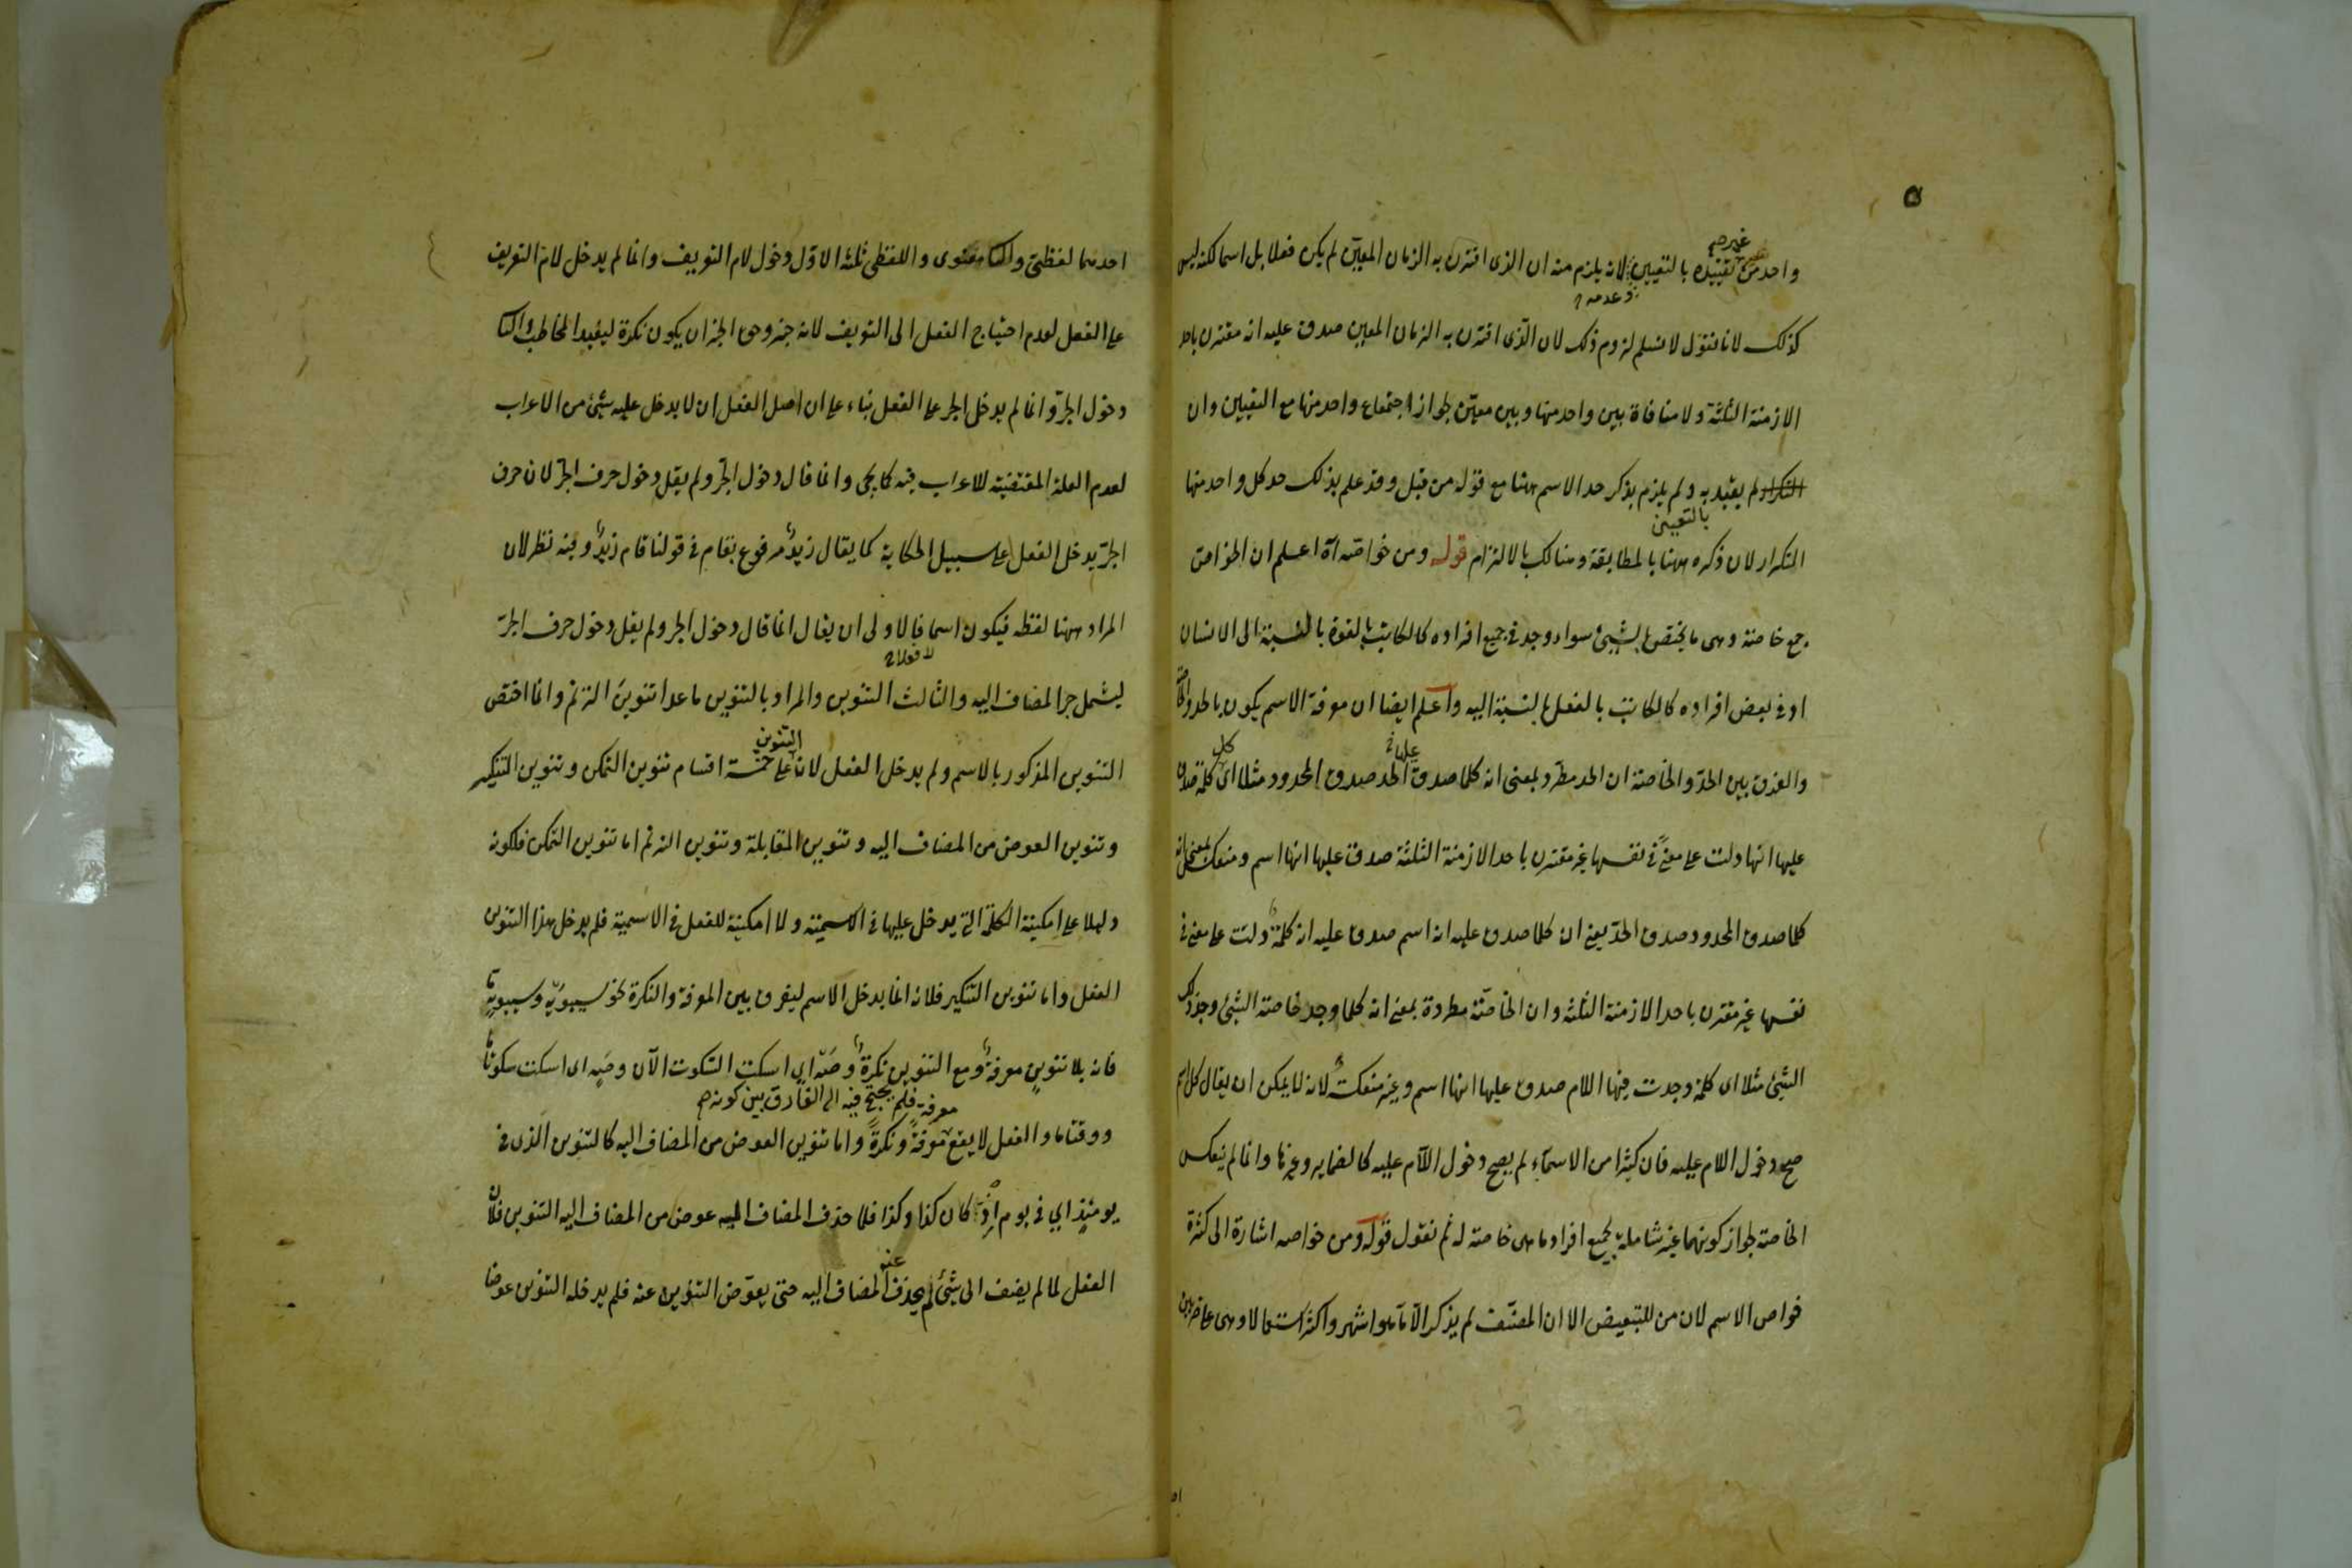 ٥
غير صحيح
واحد من تقييده بالتعيين لانه يلزم منه ان الذى اقترن به الزمان المعين لم يكن فعلا بل اسما لكنه ليس
وعدمه
كذلك لانا نقول لا نسلم لزوم ذلك لان الذى اقترن به الزمان المعين صدق عليه انه مقترن باحد
الازمنة الثلثة ولا منافاة بين واحد منها وبين معين لجواز اجتماع واحد منها مع التعيين وان
لم يقيد به ولم يلزم بذكر حد الاسم ههنا مع قوله من قبل وقد علم بذلك حد كل واحد منها
بالتعيين
التكرار لان ذكره ههنا بالمطابقة وهنالك بالالتزام قوله ومن خواصه آه اعلم ان الخواص
جمع خاصة وهى ما يختص بالشيئ سواء وجد فى جميع افراده كالكاتب بالقوة بالنسبة الى الانسان
او فى بعض افراده كالكاتب بالفعل بالنسبة اليه واعلم ايضا ان معرفة الاسم يكون بالحد والخاصة
والفرق بين الحد والخاصة ان الحد مطرد بمعنى انه كلما صدق الحد صدق المحدود مثلا اى كلمة صدق
عليها انها دلت على معنى فى نفسها غير مقترن باحد الازمنة الثلثة صدق عليها انها اسم ومنعكس بمعنى انه
كلما صدق المحدود صدق الحد يعنى ان كلما صدق عليه انه اسم صدق عليه انه كلمة دلت على معنى فى
نفسها غير مقترن باحد الازمنة الثلثة وان الخاصة مطردة بمعنى انه كلما وجد خاصة الشيئ وجد ذلك
الشيئ مثلا اى كلمة وجدت فيها اللام صدق عليها انها اسم وغير منعكسة لانه لا يمكن ان يقال كل اسم
صح دخول اللام عليه فان كثيرا من الاسماء لم يصح دخول اللام عليه كالضماير وغيرها وانما لم ينعكس
الخاصة لجواز كونها غير شاملة لجميع افراد ما هى خاصة له ثم نقول قوله ومن خواصه اشارة الى كثرة
خواص الاسم لان من للتبعيض الا ان المصنف لم يذكر الا ما هو اشهر واكثر استعمالا وهى على ضربين
احدهما لفظى و معنوى واللفظى ثلثة الاول دخول لام التعريف وانما لم يدخل لام التعريف
على الفعل لعدم احتياج الفعل الى التعريف لانه خبر وحق الخبر ان يكون نكرة ليفيد المخاطب
دخول الجر وانما لم يدخل الجر على الفعل بناء على ان اصل الفعل ان لا يدخل عليه شيئ من الاعراب
لعدم العلة المقتضية للاعراب فيه كما يجئ وانما قال دخول الجر ولم يقل دخول حرف الجر لان حرف
الجر يدخل الفعل على سبيل الحكاية كما يقال زيد مرفوع بقام فى قولنا قام زيد وفيه نظر لان
المراد ههنا لفظه فيكون اسما فالاولى ان يقال انما قال دخول الجر ولم يقل دخول حرف الجر
لا فعلا
ليشمل جر المضاف اليه والثالث التنوين والمراد بالتنوين ما عدا تنوين الترنم وانما اختص
التنوين
التنوين المذكور بالاسم ولم يدخل الفعل لان على خمسة اقسام تنوين التمكن وتنوين التنكير
وتنوين العوض من المضاف اليه وتنوين المقابلة وتنوين الترنم اما تنوين التمكن فلكونه
دليلا على امكنية الكلمة التى يدخل عليها فى الاسمية ولا امكنية للفعل فى الاسمية فلم يدخل هذا التنوين
الفعل واما تنوين التنكير فلانه انما يدخل الاسم ليفرق بين المعرفة والنكرة نحو سيبويه وسيبويه
فانه بلا تنوين معرفة ومع التنوين نكرة وصه اى اسكت السكوت الآن وصه اى اسكت سكوتا
معرفة فلم يحتج فيه الى الفارق بين كونه
ووقتا ما والفعل لا يقع معرفة ونكرة واما تنوين العوض من المضاف اليه كالتنوين الذى فى
يومئذ اى فى يوم اذ كان كذا وكذا فلما حذف المضاف اليه عوض من المضاف اليه التنوين فلان
عنه
الفعل لما لم يضف الى شيئ لم يحذف المضاف اليه حتى يعوض التنوين عنه فلم يدخله التنوين عوضا